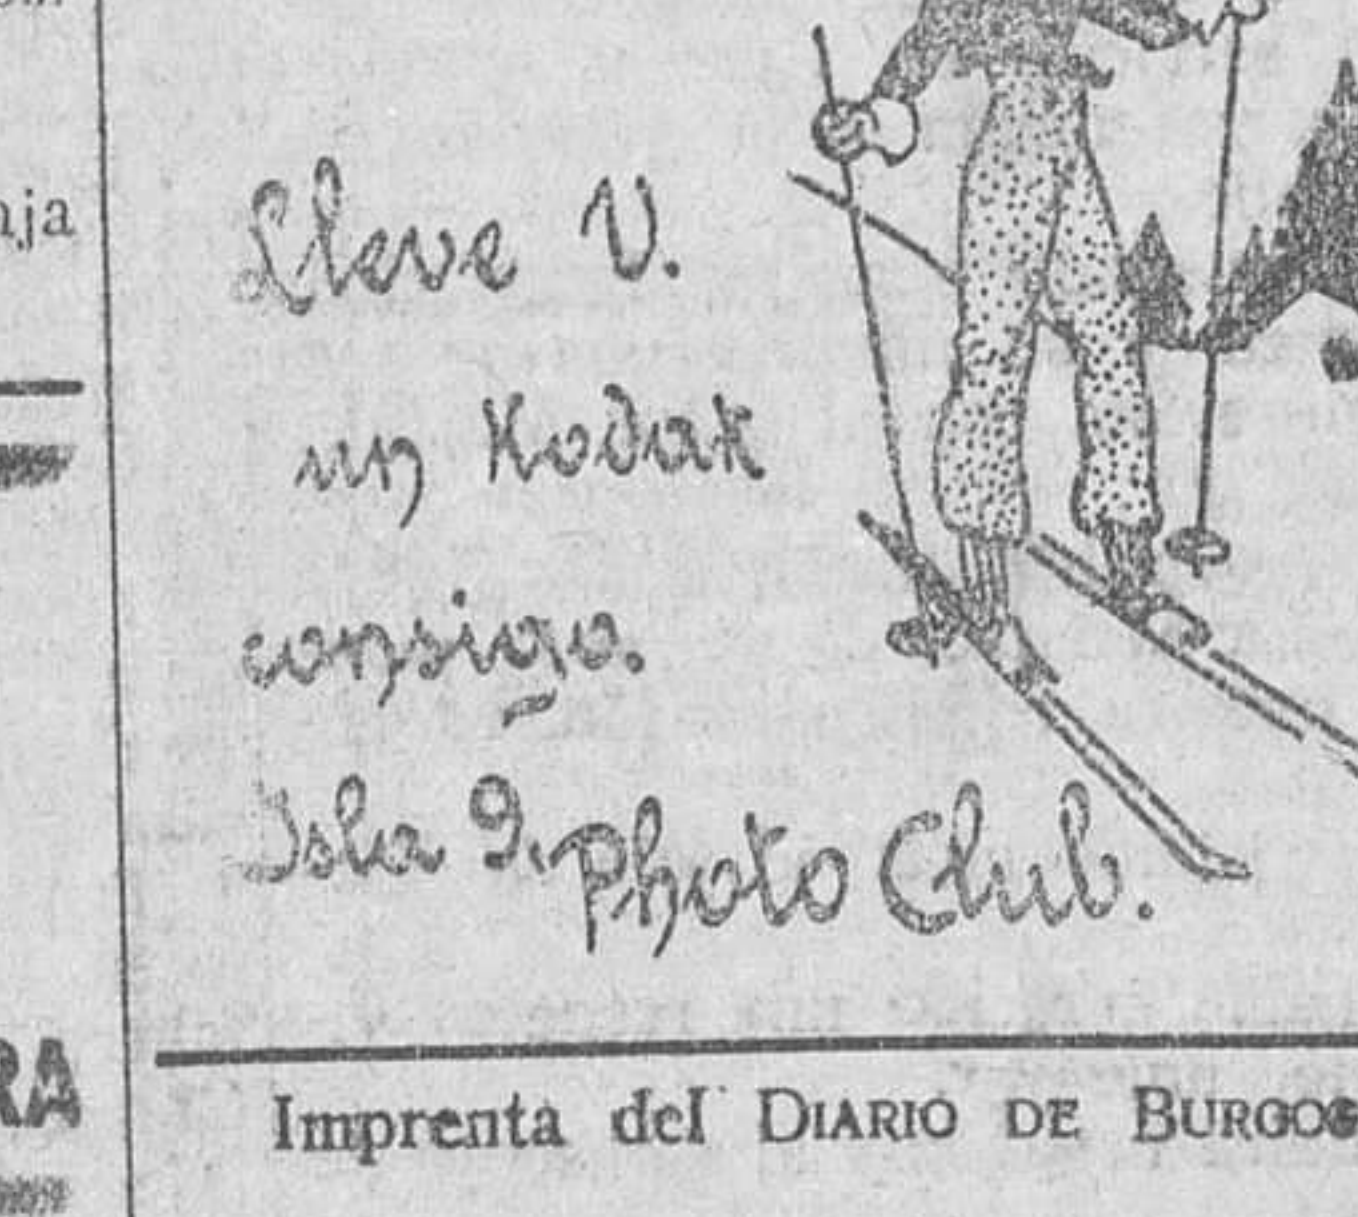 aja
Lleve V.
un Kodak
consigo.
Isla 9. Photo Club.
RA
Imprenta del DIARIO DE BURGOS